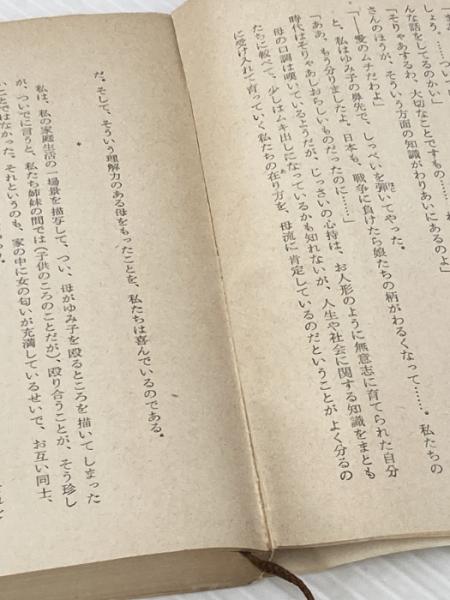 しょう、……つい……
んな話をしてるのかい」
「そりゃあするわ、大切なことですもの……
さんのほうが、そういう方面の知識がわりあいにあるのよ」
「――愛のムチだわよ」
と、私はゆみ子の鼻先で、しっぺいを弾いてやった。
「ああ、もう分りましたよ。日本も、戦争に負けたら娘たちの柄がわるくなって……。私たちの
時代はそりゃあしおらしいものだったのに……」
母の口調は嘆いているようだが、じっさいの心持は、お人形のように無意志に育てられた自分
たちに較べて、少しはムキ出しになっているかも知れないが、人生や社会に関する知識をまとも
に受け入れて育っていく私たちの在り方を、母流に肯定しているのだということがよく分るの
だ。そして、そういう理解力のある母をもったことを、私たちは喜んでいるのである。
*
私は、私の家庭生活の一場景を描写して、つい、母がゆみ子を殴るところを描いてしまった
が、ついでに言うと、私たち姉妹の間では(子供のころのことだが)、殴り合うことが、そう珍し
いことではなかった。それというのも、家の中に女の匂いが充満しているせいで、お互い同士、